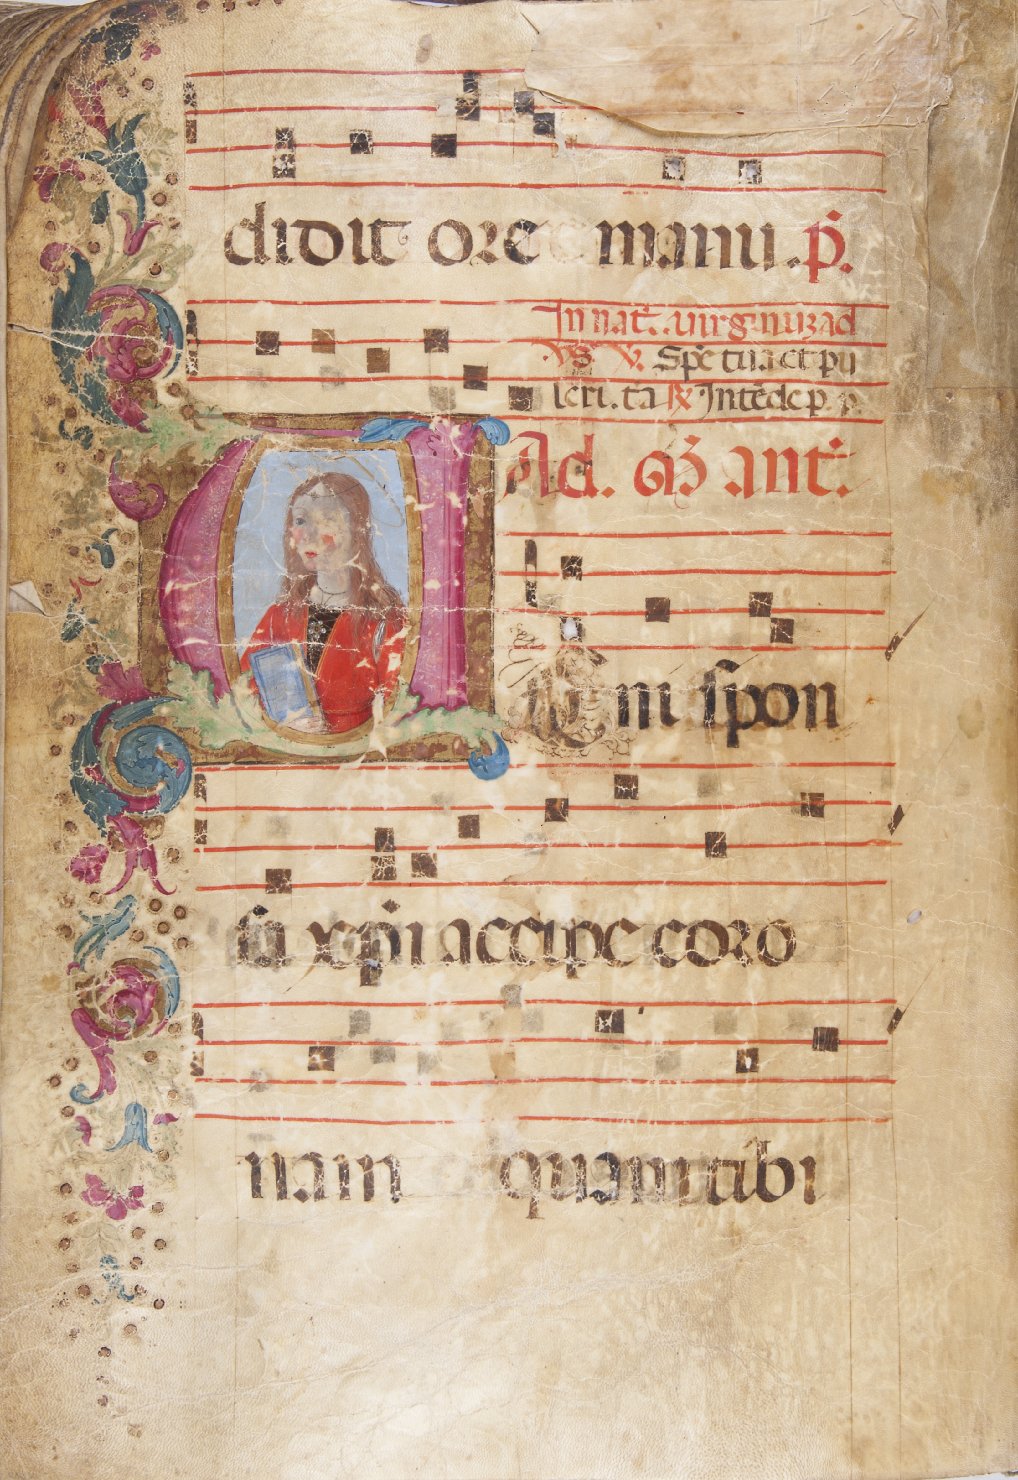 didit ore manu. p̄.
In nat̄. uirginuʒ ad
vs. ℣. Spē tua et pu
lcri. ta ℟ Intēde p. p
Ad. m̄g ant̄.
UEni spon
sa xp̄i accipe coro
nam quam tibi